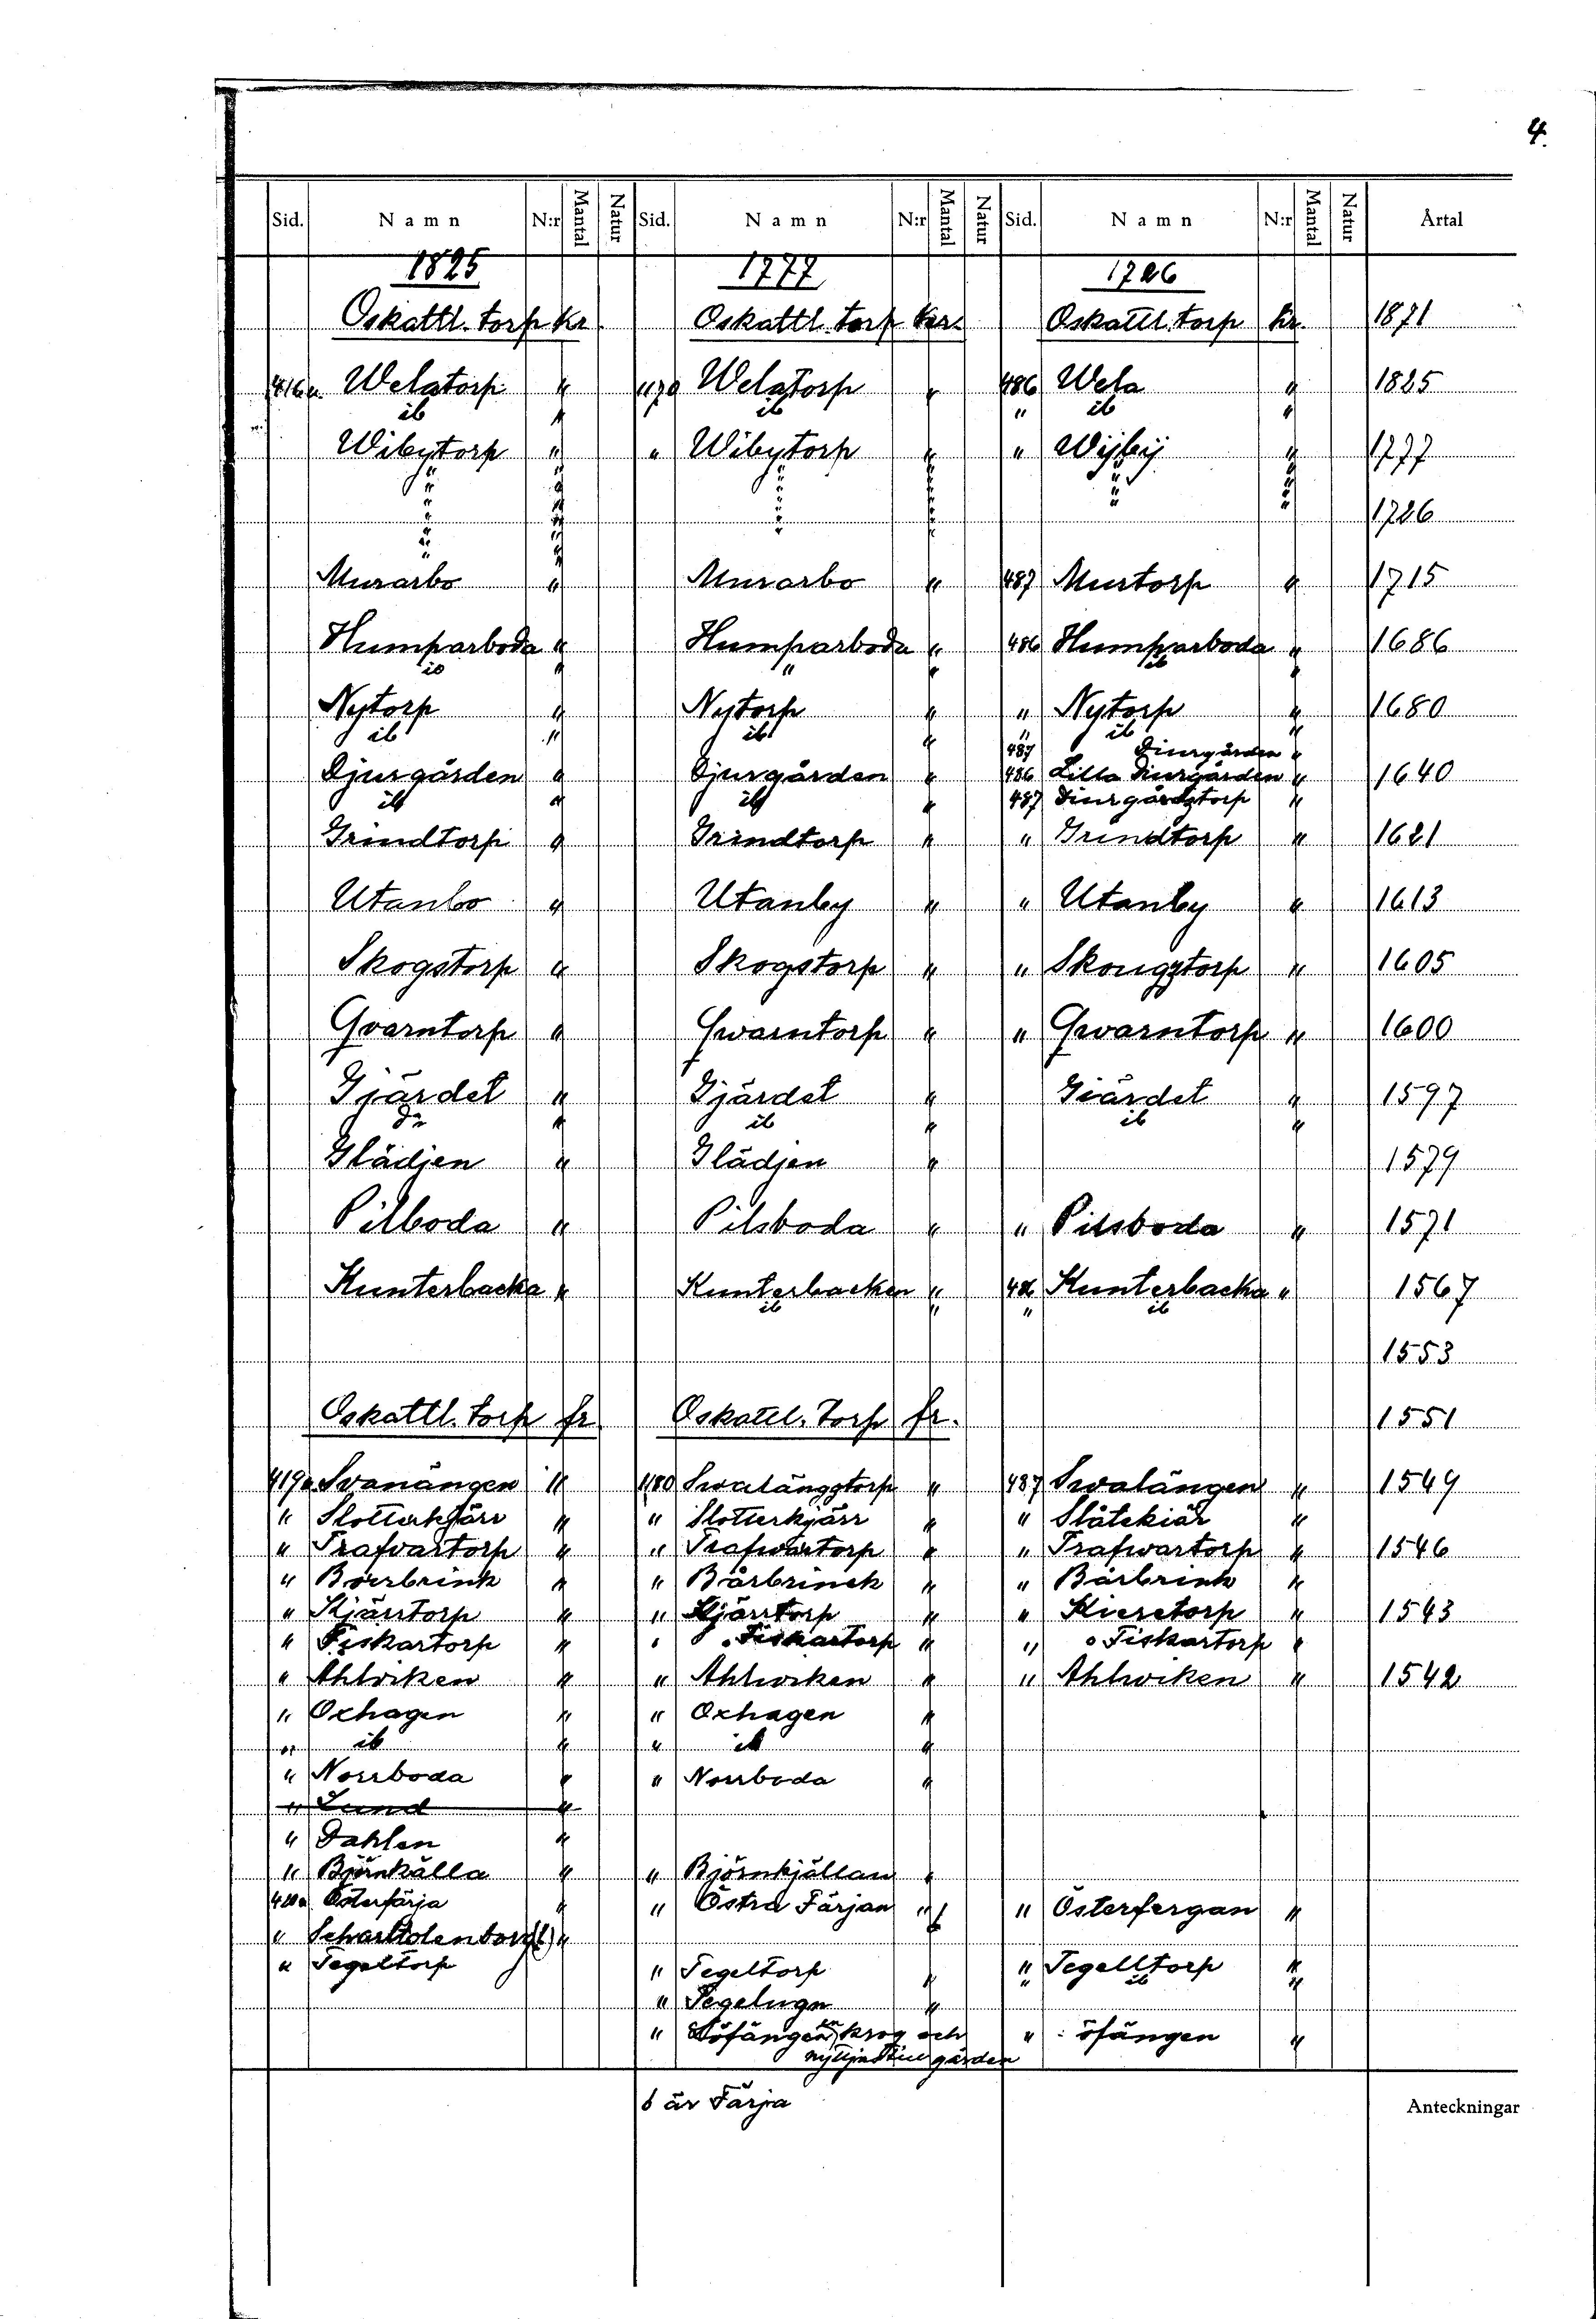 4.
Sid. Namn N:r Mantal Natur Sid. Namn N:r Mantal Natur Sid. Namn N:r Mantal Natur Årtal
1825 1777 1726
Oskattl. torp kr Oskattl. torp kr. Oskattl. torp kr. 1871
416a Welatorp " 1179 Welatorp " 486 Wela " 1825
ib " ib " ib "
Wibytorp " " Wibytorp " " Wijbij " 1777
" " " " " "
" " " " " "
" " " " 1726
" " " "
" "
Murarbo " Murarbo " 487 Murtorp " 1715
Humparboda " Humparboda " 486 Humparboda " 1686
ib " " " ib "
Nytorp " Nytorp " " Nytorp " 1680
ib " ib " " ib "
487 Diurgården "
Djurgården " Djurgården " 486 Lilla Diurgården " 1640
ib " ib " 487 Diurgårdztorp "
Grindtorp " Grindtorp " " Grindtorp " 1621
Utanbo " Utanby " " Utanby " 1613
Skogstorp " Skogstorp " " Skougztorp " 1605
Qvarntorp " Qwarntorp " " Qwarntorp " 1600
Gjärdet " Gjärdet " Giärdet " 1597
Do " ib " ib "
Glädjen " Glädjen " 1579
Pilboda " Pilsboda " " Pilsboda " 1571
Kunterbacka " Kunterbacken " 486 Kunterbacka " 1567
ib " " ib
1553
Oskattl. torp fr Oskattl. torp fr. 1551
419a Svanängen " 1180 Swalängztorp " 487 Swalängen " 1549
" Slotterkjärr " " Slotterkjärr " " Slåtekiär "
" Trafvartorp " " Trafwartorp " " Trafwartorp " 1546
" Bärbrink " " Bärbrinck " " Bärbrink "
" Kjärrtorp " " Kjärrtorp " " Kierstorp " 1543
" Fiskartorp " " Fiskartorp " " o Fiskartorp "
" Ahlviken " " Ahlwiken " " Ahlwiken " 1542
" Oxhagen " " Oxhagen "
" ib " " ib "
" Norrboda " " Norrboda "
" Lund "
" Dahlen "
" Björnkälla " " Björnkjällan "
420a Österfärja " " Östra Färjan " " Österfergan "
"
" Tegeltorp " Tegeltorp " " Tegelltorp "
" ib "
" Tegelugn "
" krog och " öfängen "
gården
o är Färja Anteckningar